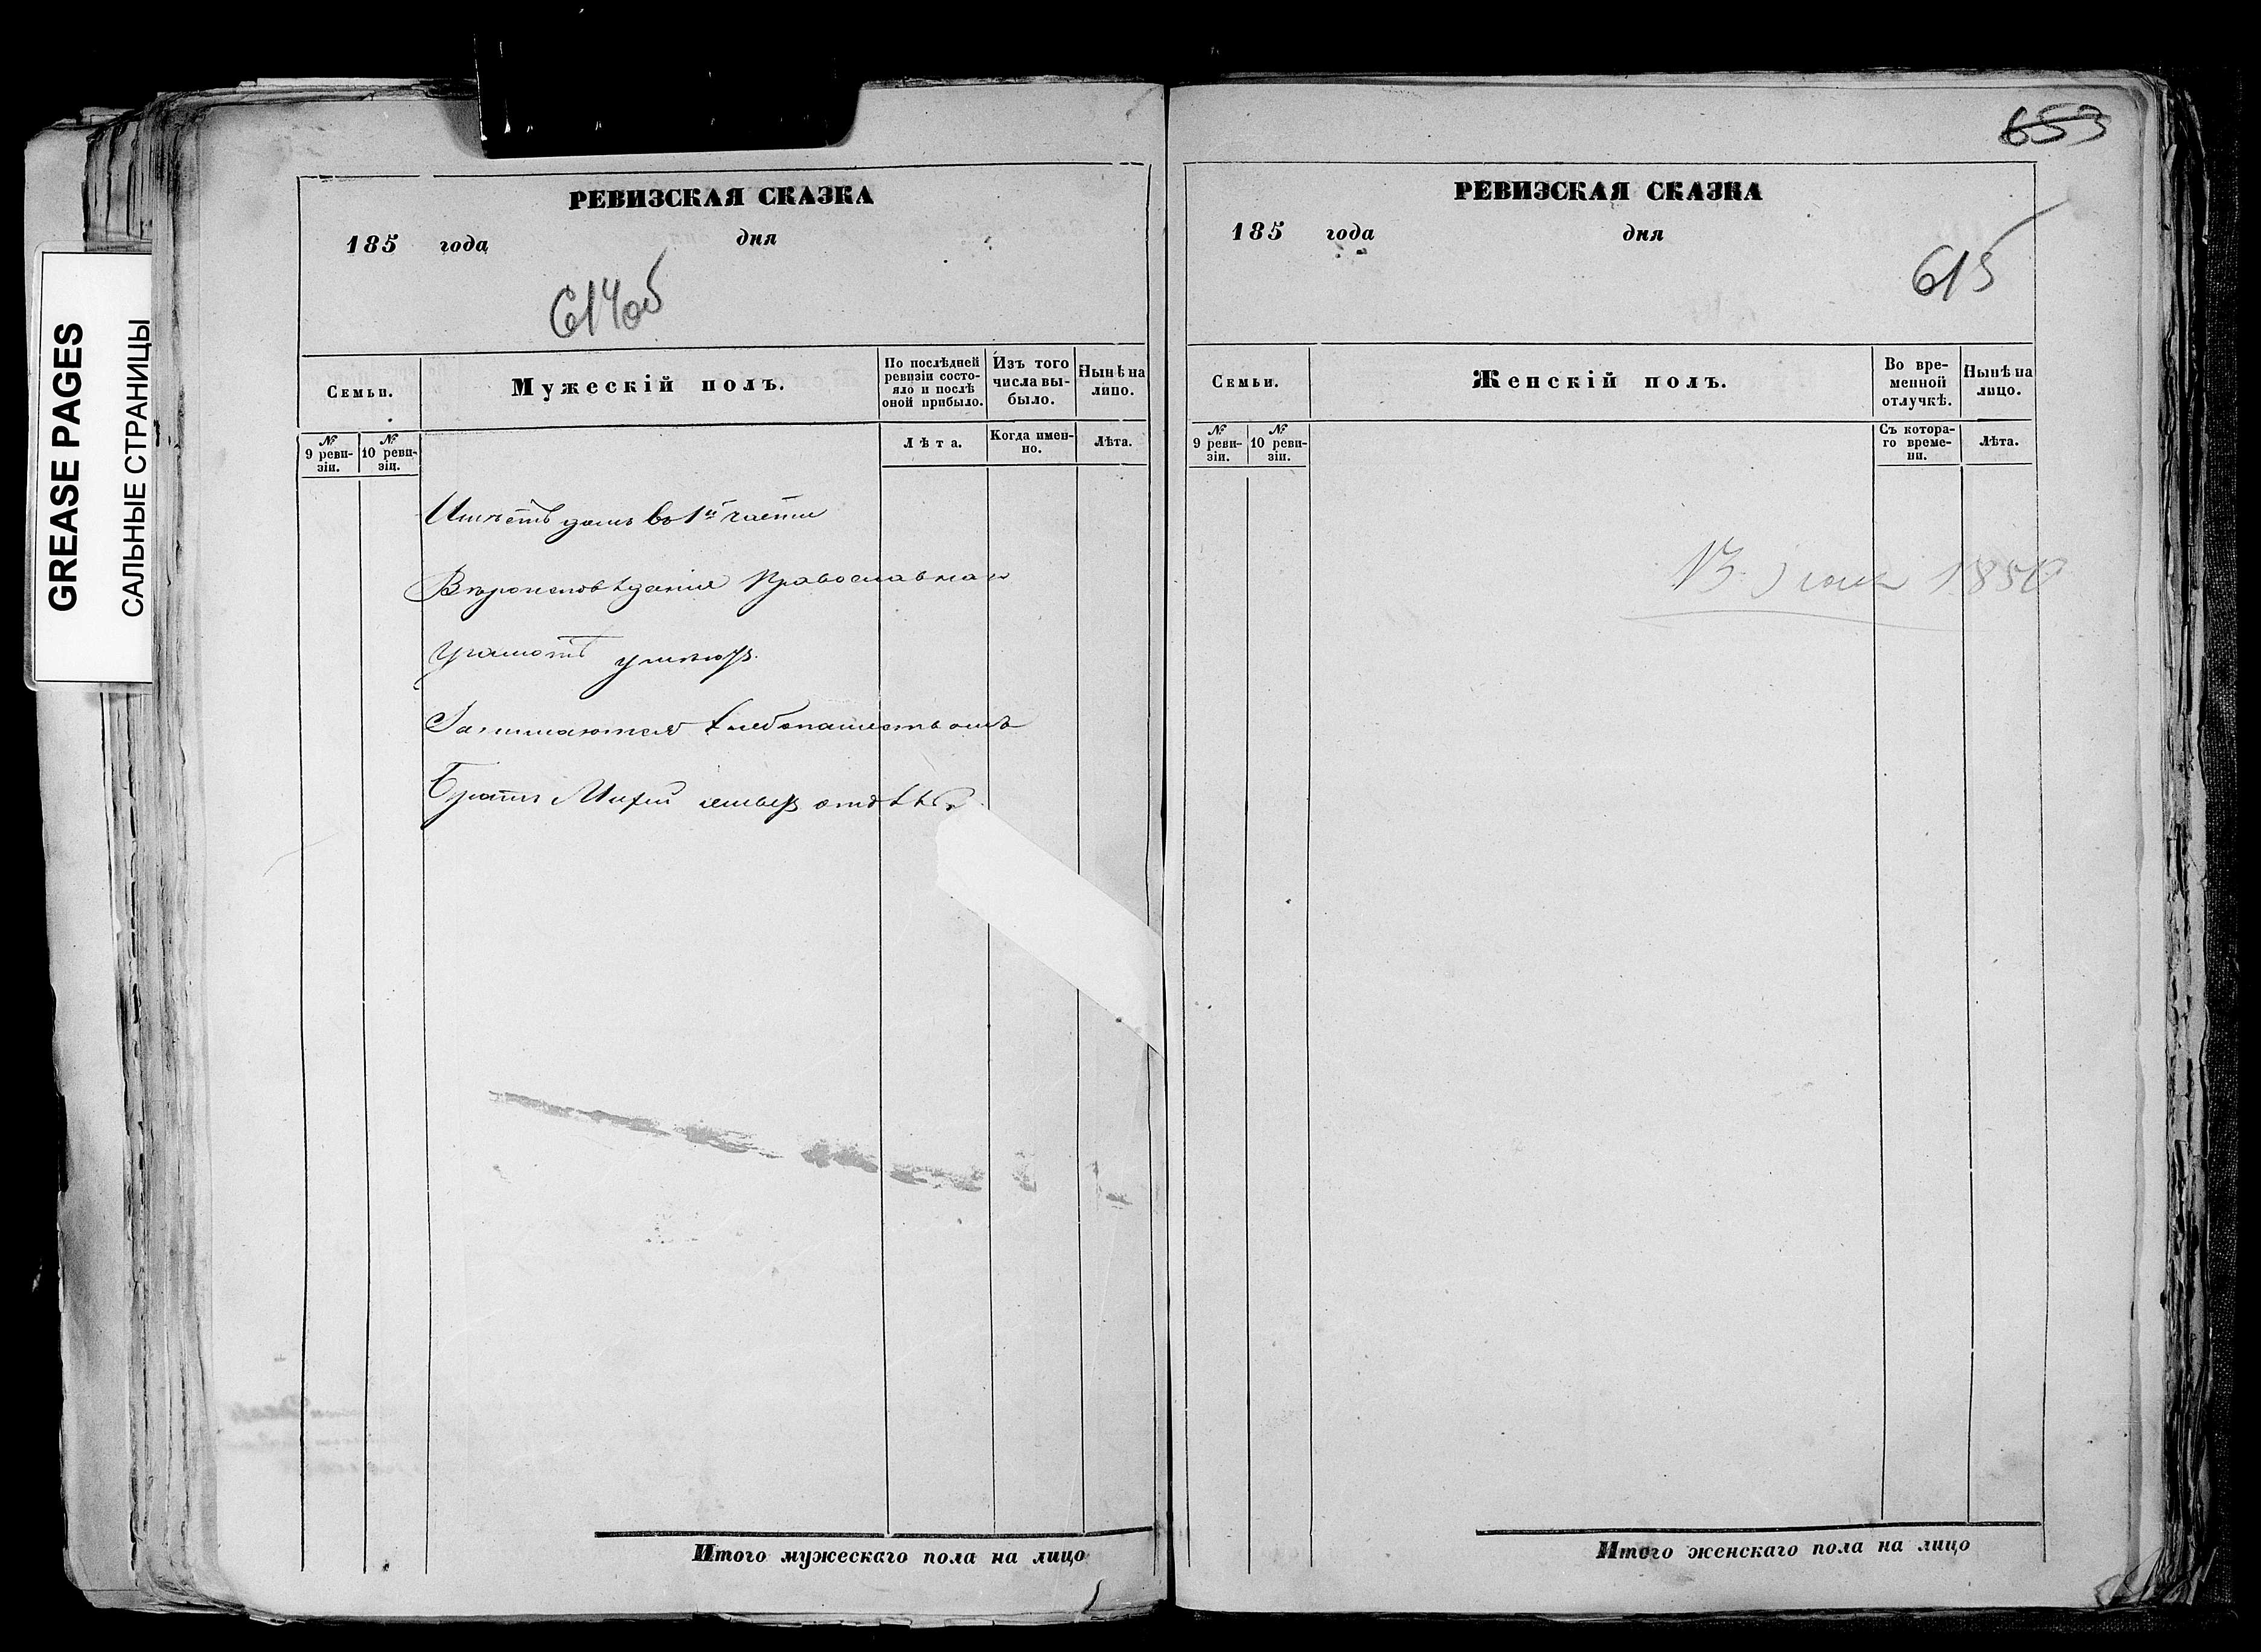 GREASE PAGES
САЛЬНЫЕ СТРАНИЦЫ
РЕВИЗСКАЯ СКАЗКА
185 года дня
614об
Семьи.
Мужескій полъ.
По послѣдней ревизіи состо-
яло и послѣ
оной прибыло.
Изъ того
числа вы-
было.
Нынѣ на
лицо.
№ 9 реви-
зіи.
№ 10 реви-
зіи.
Лѣта.
Когда имен-
но.
Лѣта.
Имѣетъ домъ во 1й части
Вѣроисповѣданія Православнаго
Грамотѣ умѣютъ.
Занимаются хлебопашествомъ
Братъ
Итого мужескаго пола на лицо
653
РЕВИЗСКАЯ СКАЗКА
185 года дня
615
Семьи.
Женскій полъ.
Во вре-
менной
отлучкѣ.
Нынѣ на
лицо.
№ 9 реви-
зіи.
№ 10 реви-
зіи.
Съ котора-
го време-
ни.
Лѣта.
13 1850
Итого женскаго пола на лицо